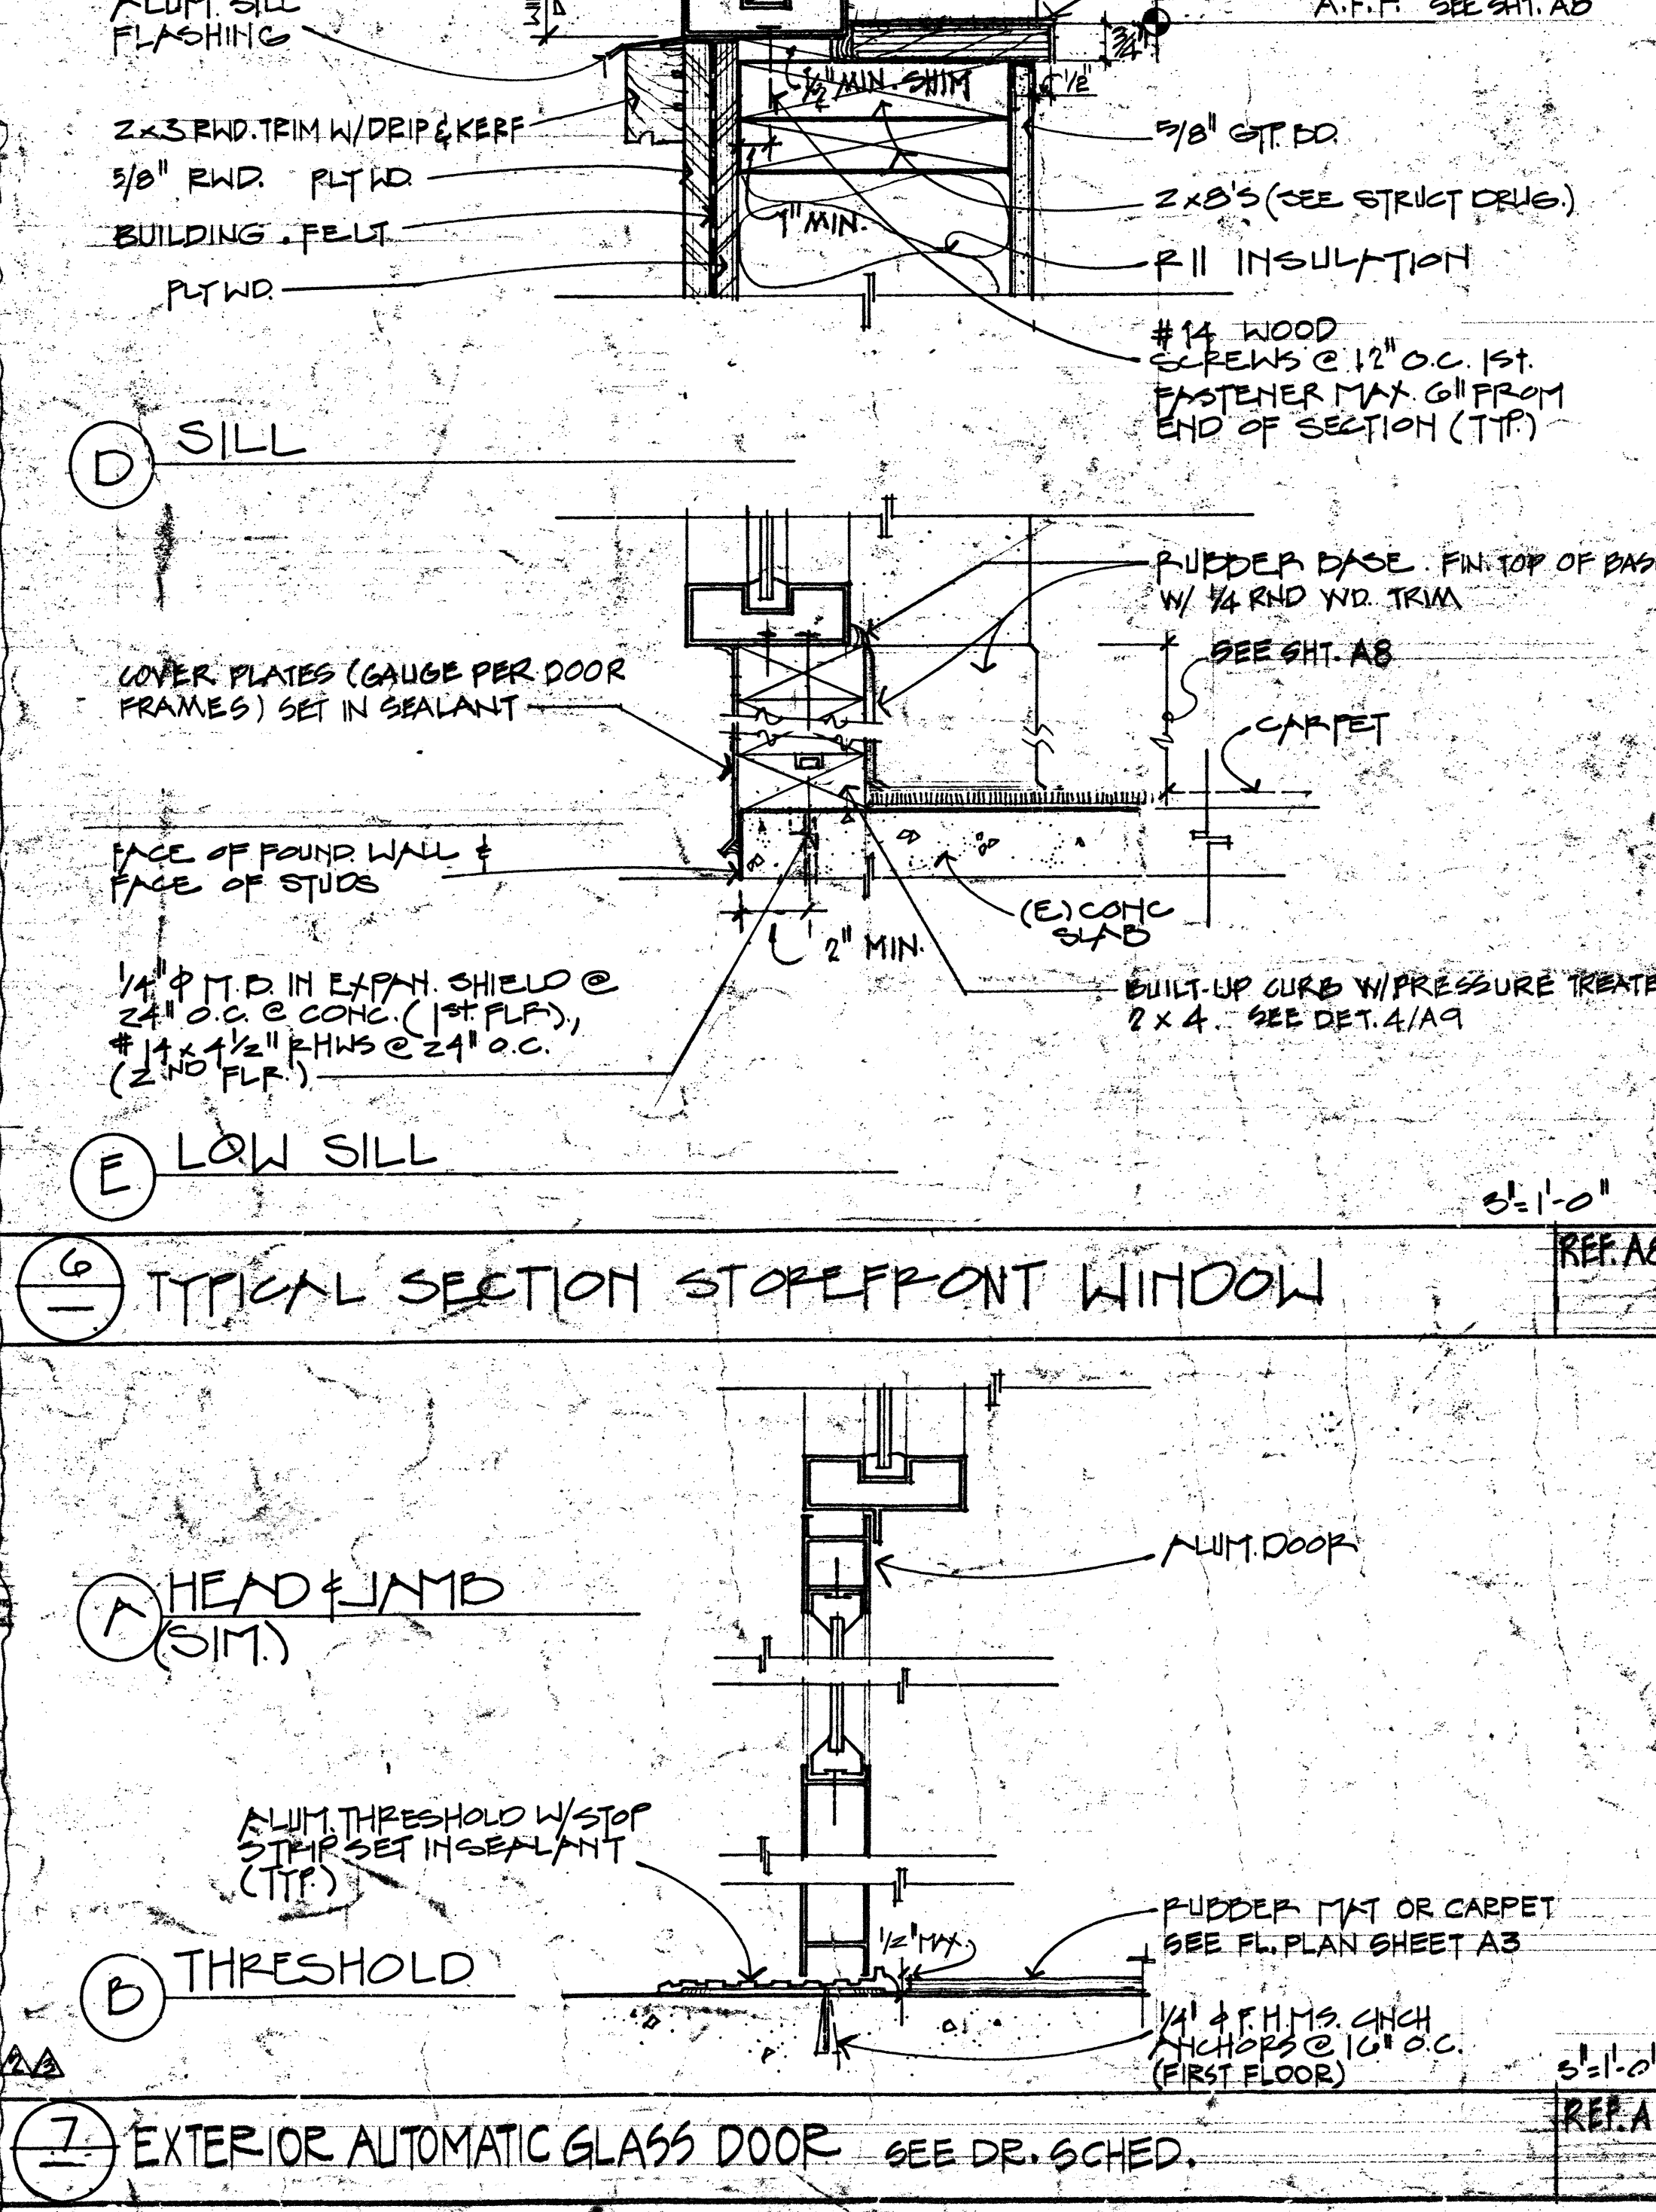 ALUM. SILL
FLASHING
A.F.F. SEE SHT. A8
3/4"
1/2" MIN. SHIM
1/2"
2x3 RWD. TRIM W/DRIP & KERF
5/8" GYP. BD.
5/8" RWD. PLYWD.
2x8'S (SEE STRUCT DRWG.)
1" MIN.
BUILDING . FELT
R11 INSULATION
PLYWD.
#14 WOOD
SCREWS @ 12" O.C. 1st.
FASTENER MAX. 6" FROM
END OF SECTION (TYP.)
D SILL
RUBBER BASE . FIN. TOP OF BAS
W/ 1/4 RND WD. TRIM
SEE SHT. A8
COVER PLATES (GAUGE PER DOOR
FRAMES) SET IN SEALANT
CARPET
FACE OF FOUND. WALL &
FACE OF STUDS
(E) CONC
SLAB
2" MIN.
1/4" φ M.B. IN EXPAN. SHIELD @
24" O.C. @ CONC. (1st. FLR.),
#14 x 4 1/2" RHWS @ 24" O.C.
(2ND FLR.)
BUILT-UP CURB W/PRESSURE TREATE
2 x 4. SEE DET. 4/A9
E LOW SILL
3"=1'-0"
6
TYPICAL SECTION STOREFRONT WINDOW
REF. A8
ALUM. DOOR
A HEAD & JAMB
(SIM.)
ALUM. THRESHOLD W/STOP
STRIP SET IN SEALANT
(TYP.)
1/2" MAX.
RUBBER MAT OR CARPET
SEE FL. PLAN SHEET A3
B THRESHOLD
1/4" φ F.H.M.S. CINCH
ANCHORS @ 16" O.C.
(FIRST FLOOR)
2 3
3"=1'-0"
7
EXTERIOR AUTOMATIC GLASS DOOR SEE DR. SCHED.
REF. A